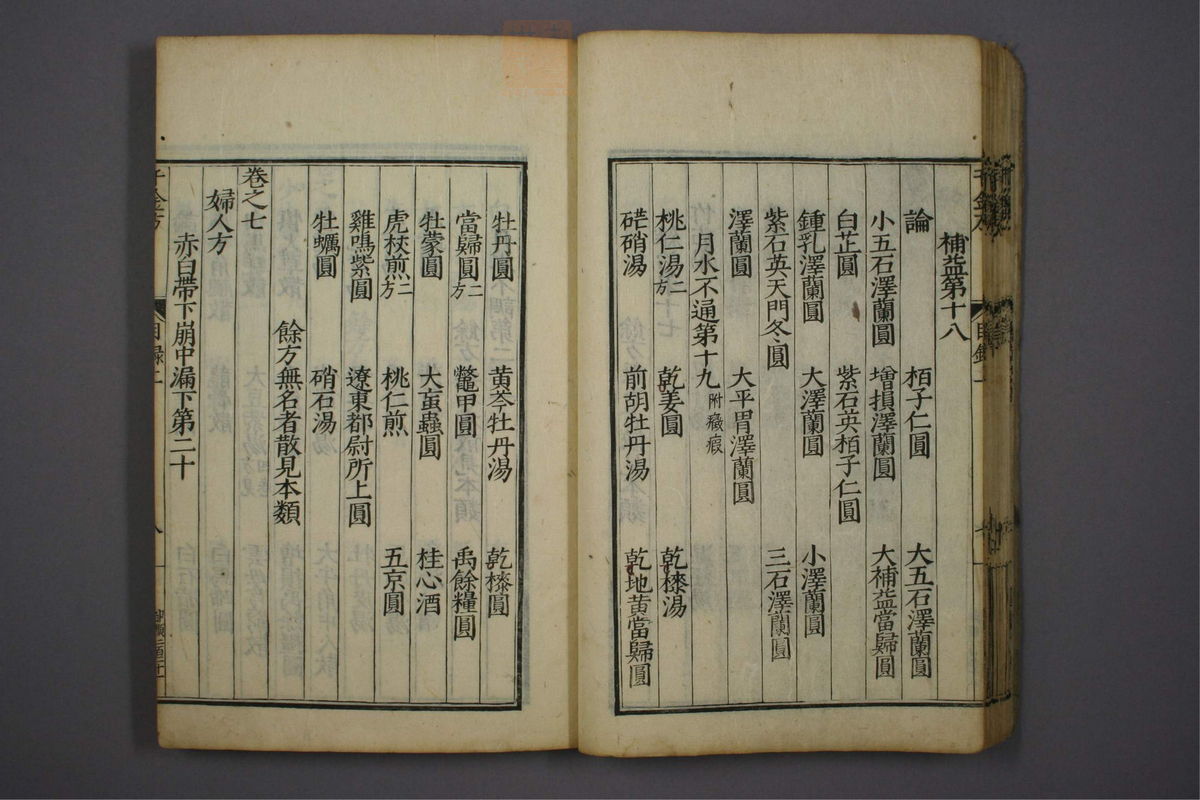 補益第十八
論　栢子仁圓　大五石澤蘭圓
小五石澤蘭圓　增損澤蘭圓　大補益當歸圓
白芷圓　紫石英栢子仁圓
鍾乳澤蘭圓　大澤蘭圓　小澤蘭圓
紫石英天門冬圓　三石澤蘭圓
澤蘭圓　大平胃澤蘭圓
月水不通第十九附癥瘕
桃仁湯二方　乾姜圓　乾㯃湯
硭硝湯　前胡牡丹湯　乾地黄當歸圓
牡丹圓　黄芩牡丹湯　乾㯃圓
當歸圓二方　鼈甲圓　禹餘糧圓
牡蒙圓　大䖟蟲圓　桂心酒
虎杖煎二方　桃仁煎　五京圓
雞鳴紫圓　遼東都尉所上圓
牡蠣圓　硝石湯
餘方無名者散見本類
卷之七
婦人方
赤白帶下崩中漏下第二十
千金方　目録二　八